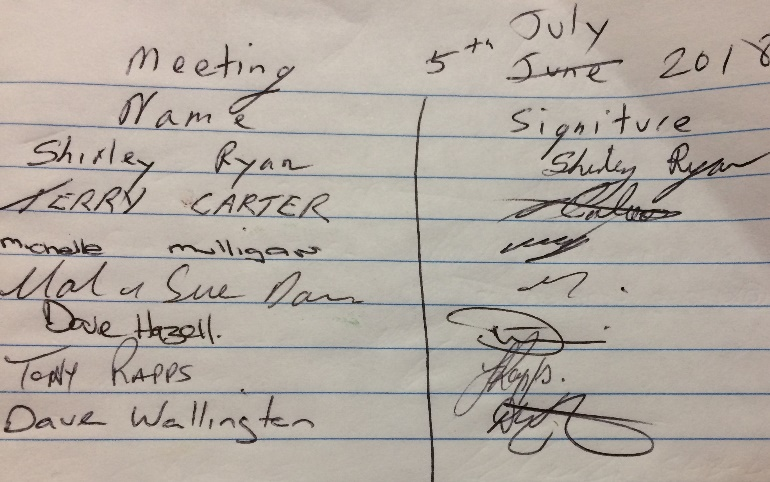 July
Meeting 5th June 2018
Name Signiture
Shirley Ryan Shirley Ryan
TERRY CARTER
michelle mulligan
Mal & Sue
Dave Hazell.
TONY RAPPS TRapps.
Dave Wallington